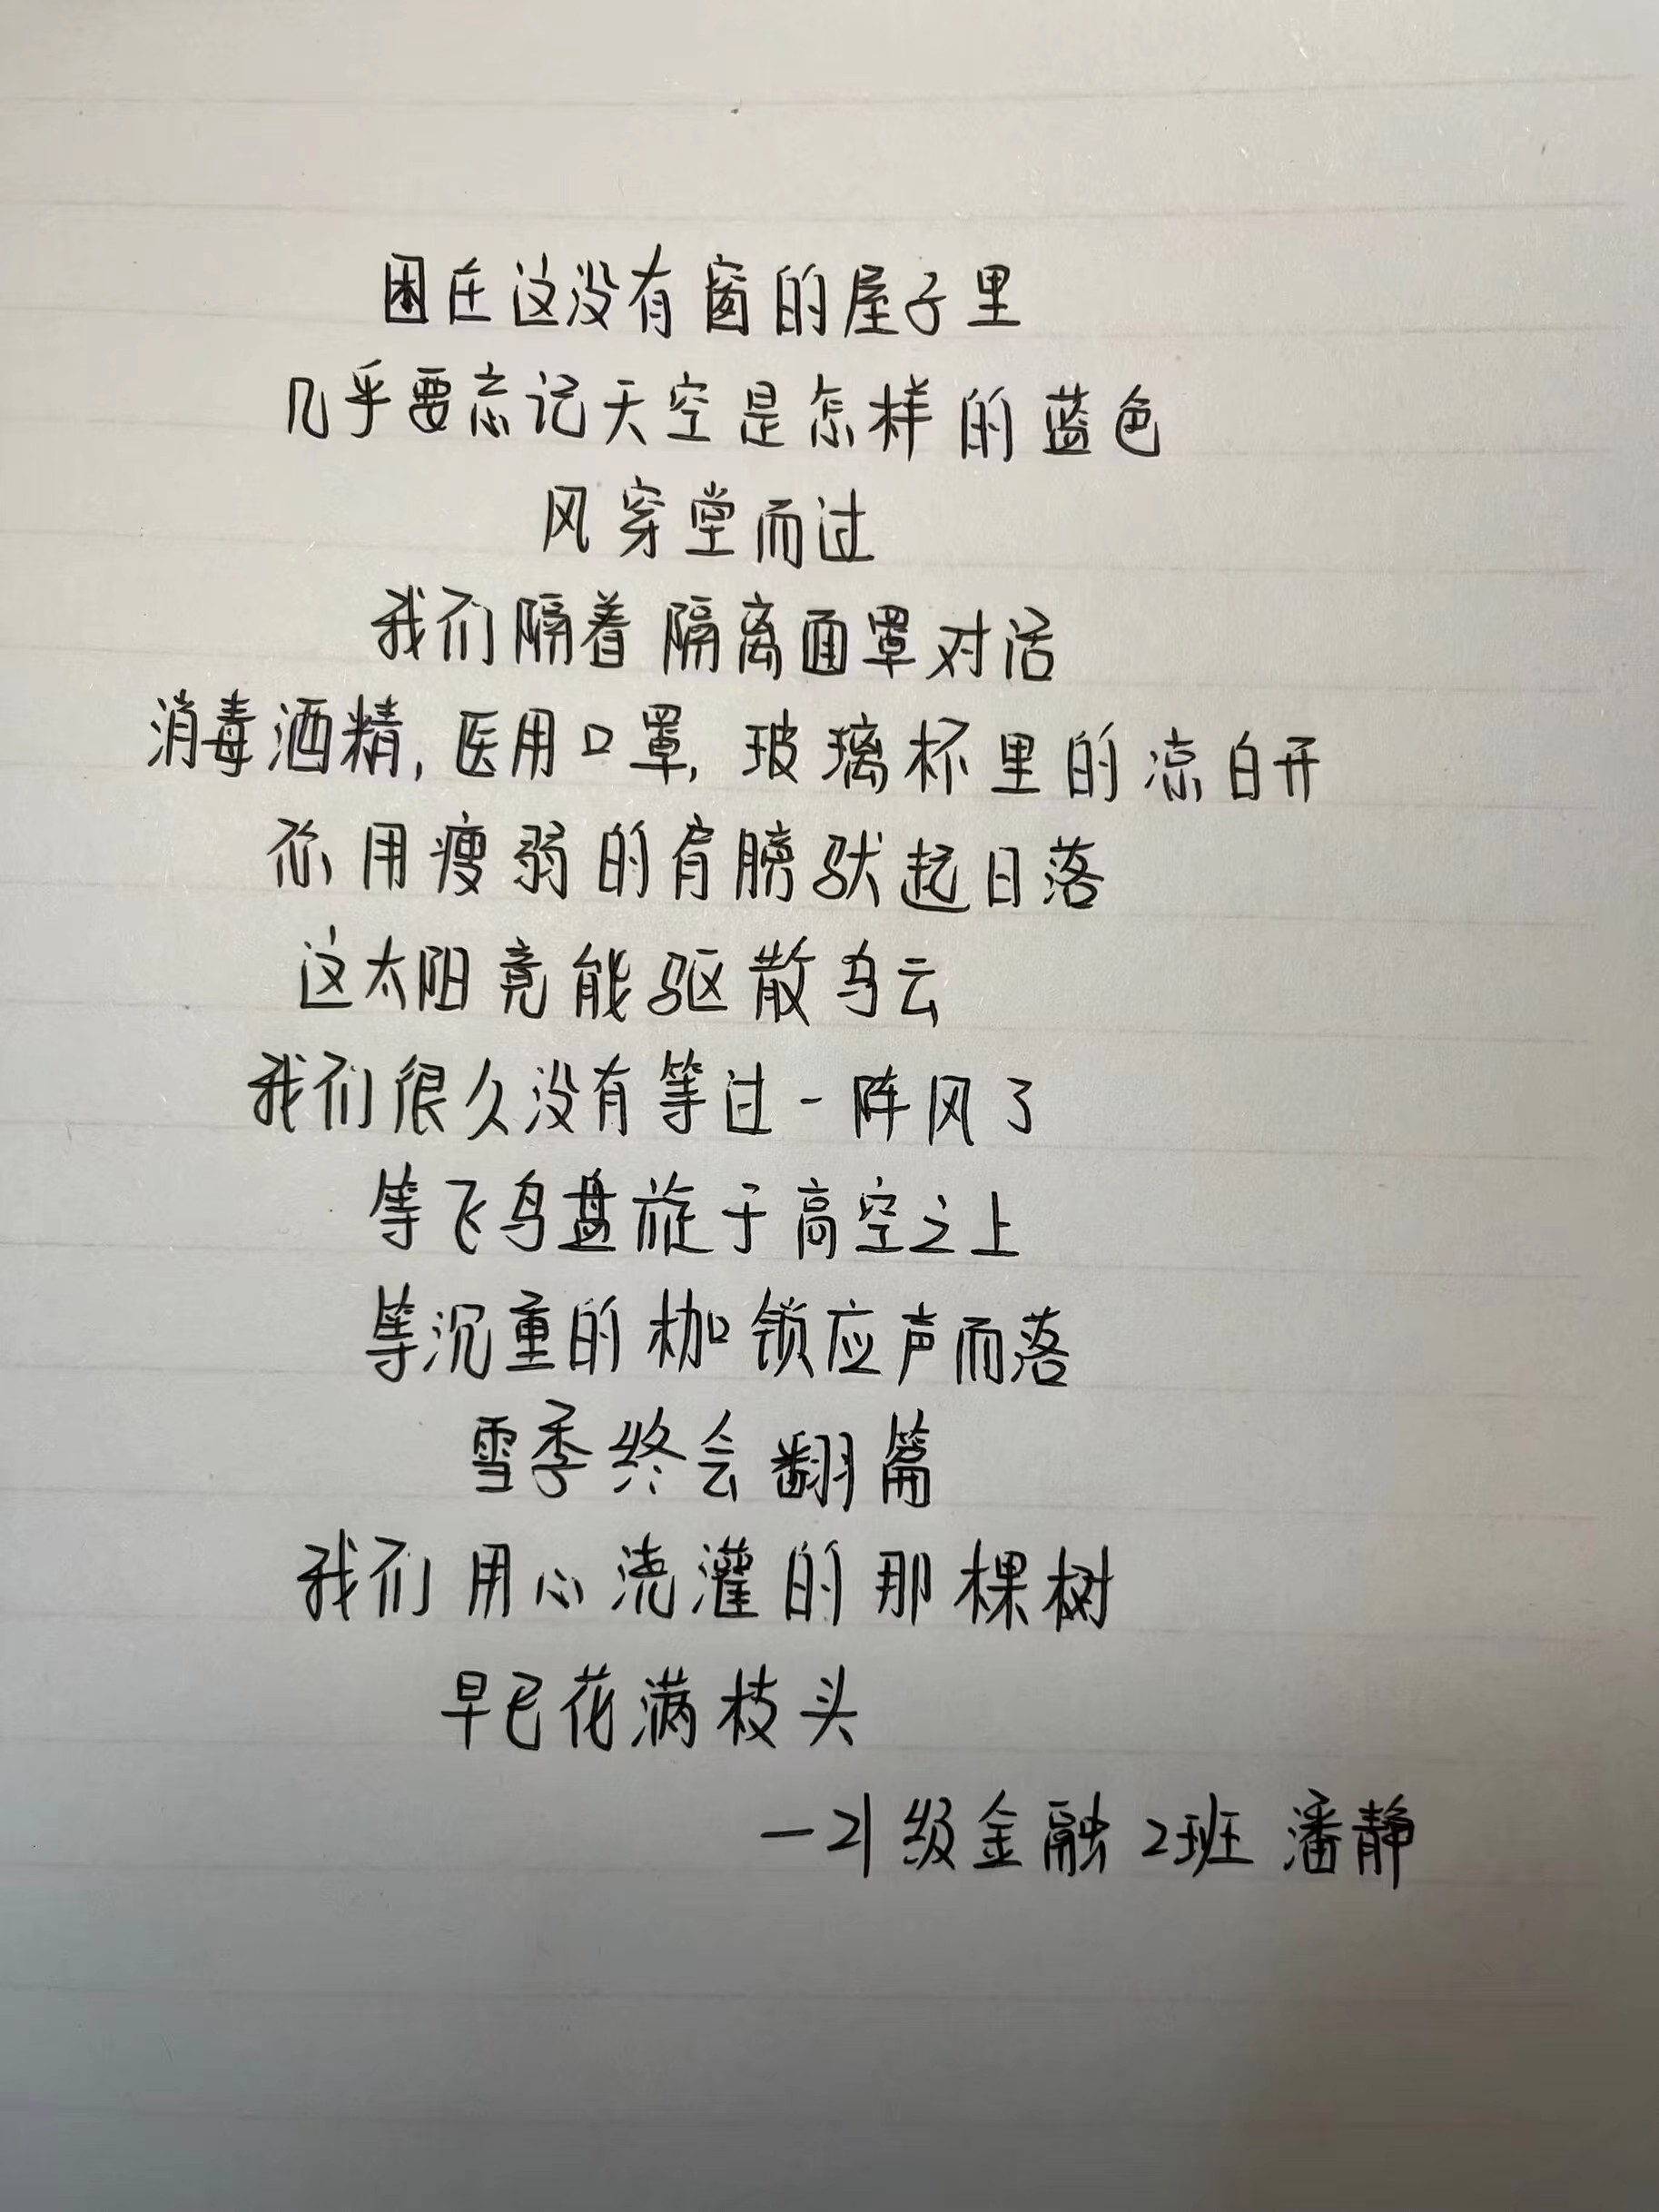 困在这没有窗的屋子里
几乎要忘记天空是怎样的蓝色
风穿堂而过
我们隔着隔离面罩对话
消毒酒精,医用口罩,玻璃杯里的凉白开
你用瘦弱的肩膀驮起日落
这太阳竟能驱散乌云
我们很久没有等过一阵风了
等飞鸟盘旋于高空之上
等沉重的枷锁应声而落
雪季终会翻篇
我们用心浇灌的那棵树
早已花满枝头
—21级金融2班 潘静